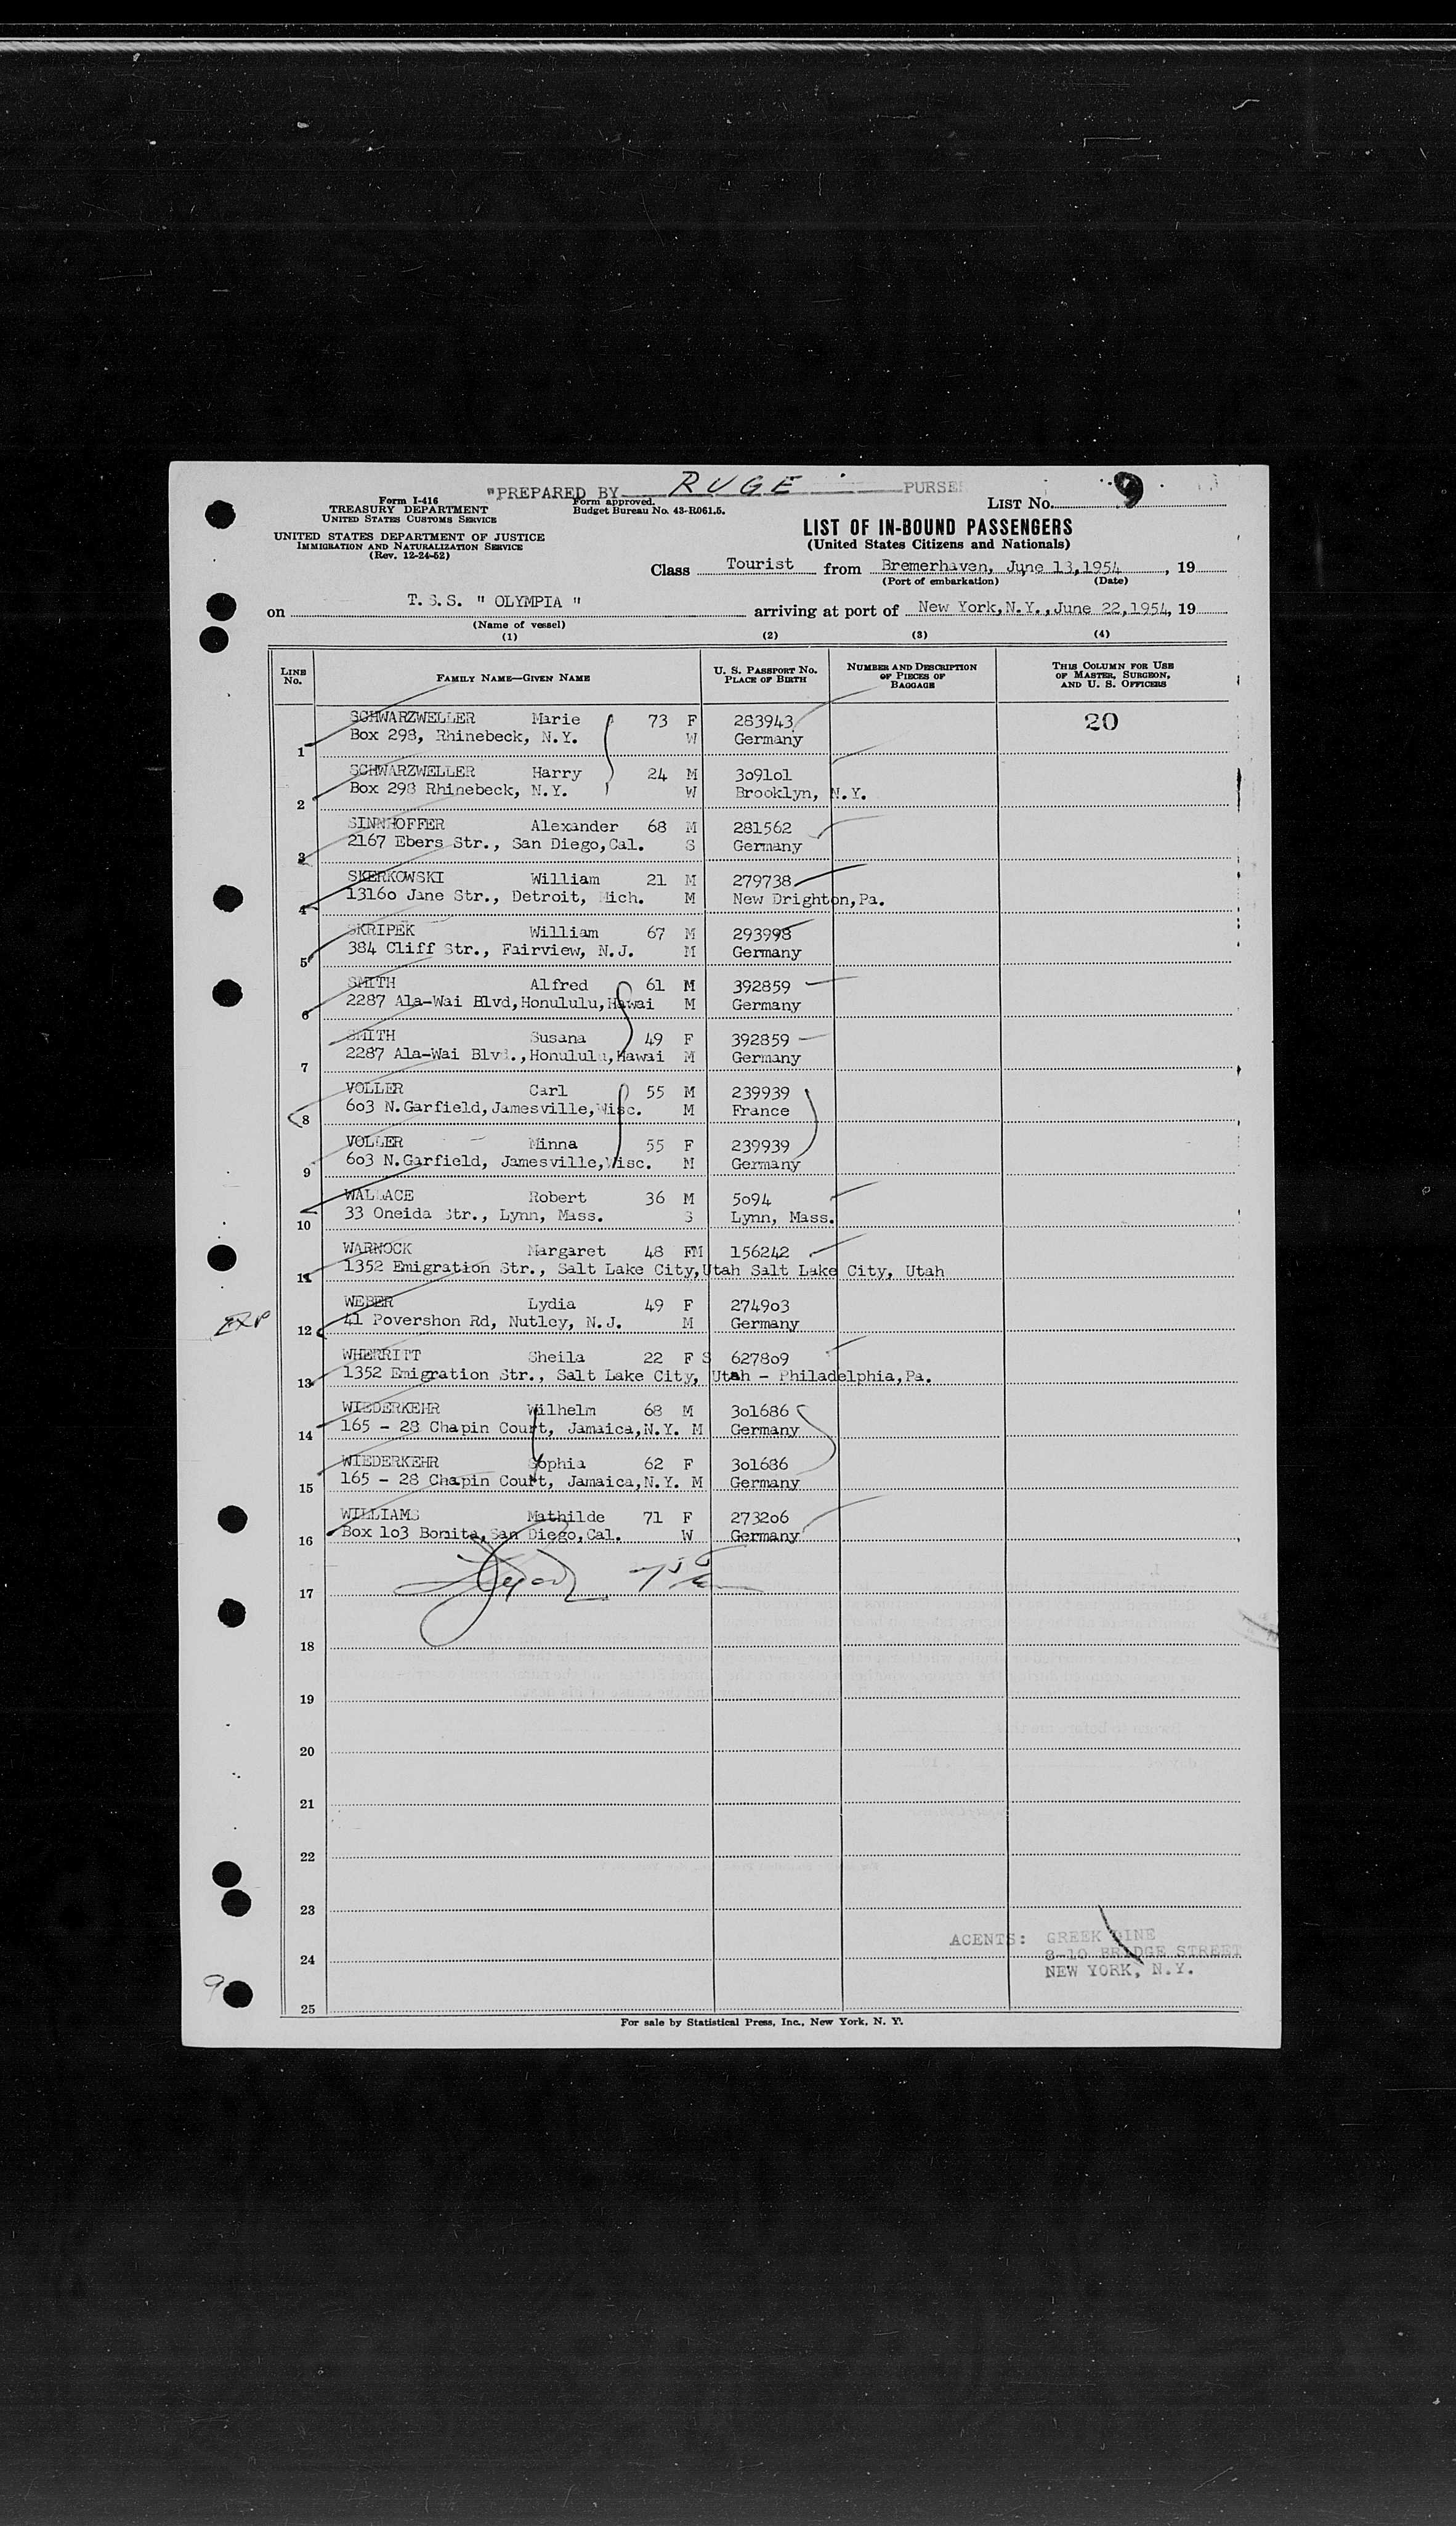 "PREPARED BY RUGE PURSER
Form I-416
TREASURY DEPARTMENT
UNITED STATES CUSTOMS SERVICE
UNITED STATES DEPARTMENT OF JUSTICE
IMMIGRATION AND NATURALIZATION SERVICE
(Rev. 12-24-52)
Form approved.
Budget Bureau No. 43-R061.5.
LIST No. 9
LIST OF IN-BOUND PASSENGERS
(United States Citizens and Nationals)
Class Tourist from Bremerhaven, June 13,1954, 19
(Port of embarkation) (Date)
on T.S.S. " OLYMPIA " arriving at port of New York,N.Y.,June 22,1954, 19
(Name of vessel)
(1) (2) (3) (4)
LINE No. FAMILY NAME—GIVEN NAME U. S. PASSPORT No. PLACE OF BIRTH NUMBER AND DESCRIPTION OF PIECES OF BAGGAGE THIS COLUMN FOR USE OF MASTER, SURGEON, AND U. S. OFFICERS
SCHWARZWELLER Marie 73 F 283943 20
1 Box 298, Rhinebeck, N.Y. W Germany
SCHWARZWELLER Harry 24 M 309101
2 Box 298 Rhinebeck, N.Y. W Brooklyn, N.Y.
SINNHOFFER Alexander 68 M 281562
3 2167 Ebers Str., San Diego,Cal. S Germany
SKERKOWSKI William 21 M 279738
4 13160 Jane Str., Detroit, Mich. M New Drighton,Pa.
SKRIPEK William 67 M 293998
5 384 Cliff Str., Fairview, N.J. M Germany
SMITH Alfred 61 M 392859
6 2287 Ala-Wai Blvd,Honululu,Hawai M Germany
SMITH Susana 49 F 392859
7 2287 Ala-Wai Blvd.,Honululu,Hawai M Germany
VOLLER Carl 55 M 239939
8 603 N.Garfield,Jamesville,Wisc. M France
VOLLER Minna 55 F 239939
9 603 N.Garfield, Jamesville,Wisc. M Germany
WALLACE Robert 36 M 5094
10 33 Oneida Str., Lynn, Mass. S Lynn, Mass.
WARNOCK Margaret 48 FM 156242
11 1352 Emigration Str., Salt Lake City,Utah Salt Lake City, Utah
WEBER Lydia 49 F 274903
12 41 Povershon Rd, Nutley, N.J. M Germany
WHERRITT Sheila 22 F S 627809
13 1352 Emigration Str., Salt Lake City, Utah - Philadelphia,Pa.
WIEDERKEHR Wilhelm 68 M 301686
14 165 - 28 Chapin Court, Jamaica,N.Y. M Germany
WIEDERKEHR Sophia 62 F 301686
15 165 - 28 Chapin Court, Jamaica,N.Y. M Germany
WILLIAMS Mathilde 71 F 273206
16 Box 103 Bonita,San Diego,Cal. W Germany
17
18
19
20
21
22
23
AGENTS: GREEK LINE
24 8-10 BRIDGE STREET
NEW YORK, N.Y.
9
25
For sale by Statistical Press, Inc., New York, N. Y.